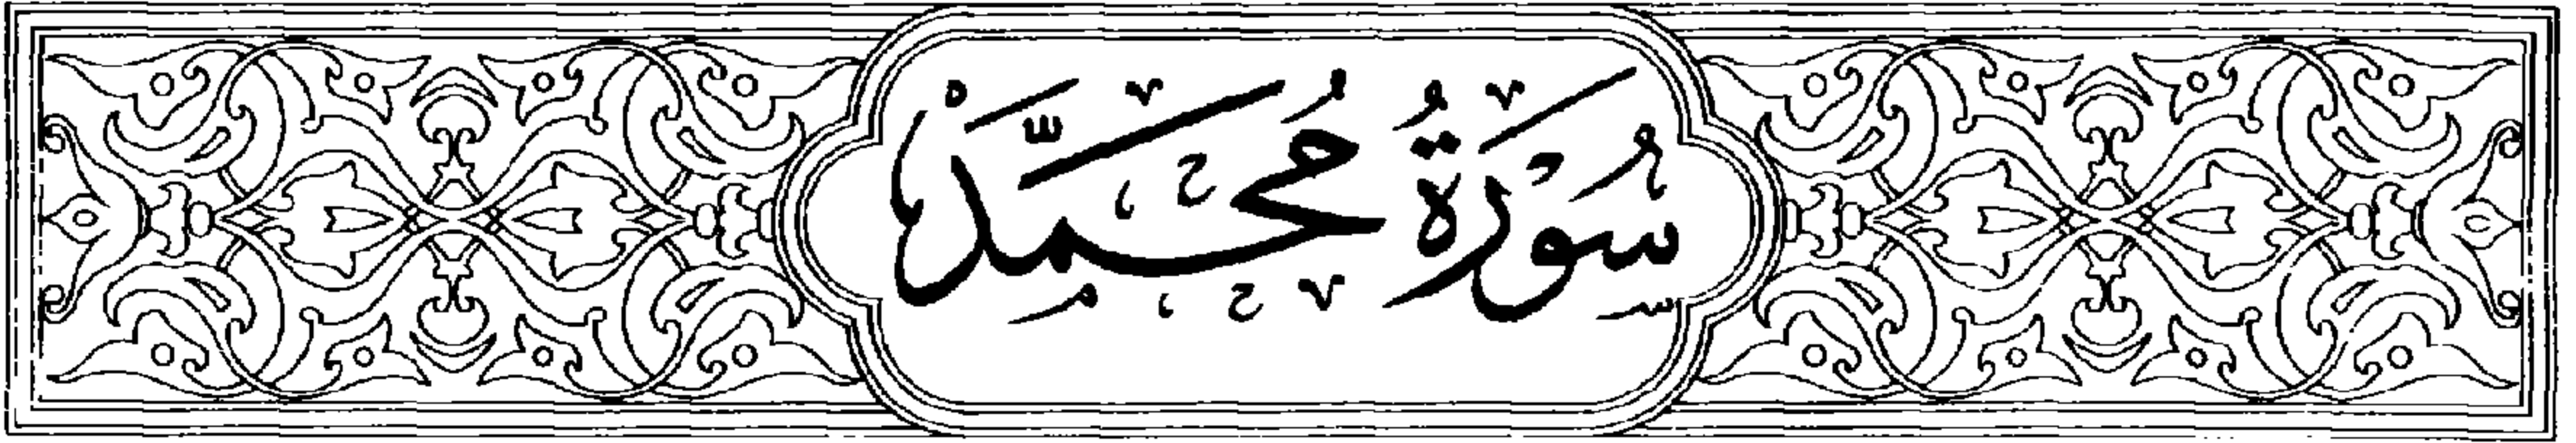 سُورَةُ مُحَمَّدْ